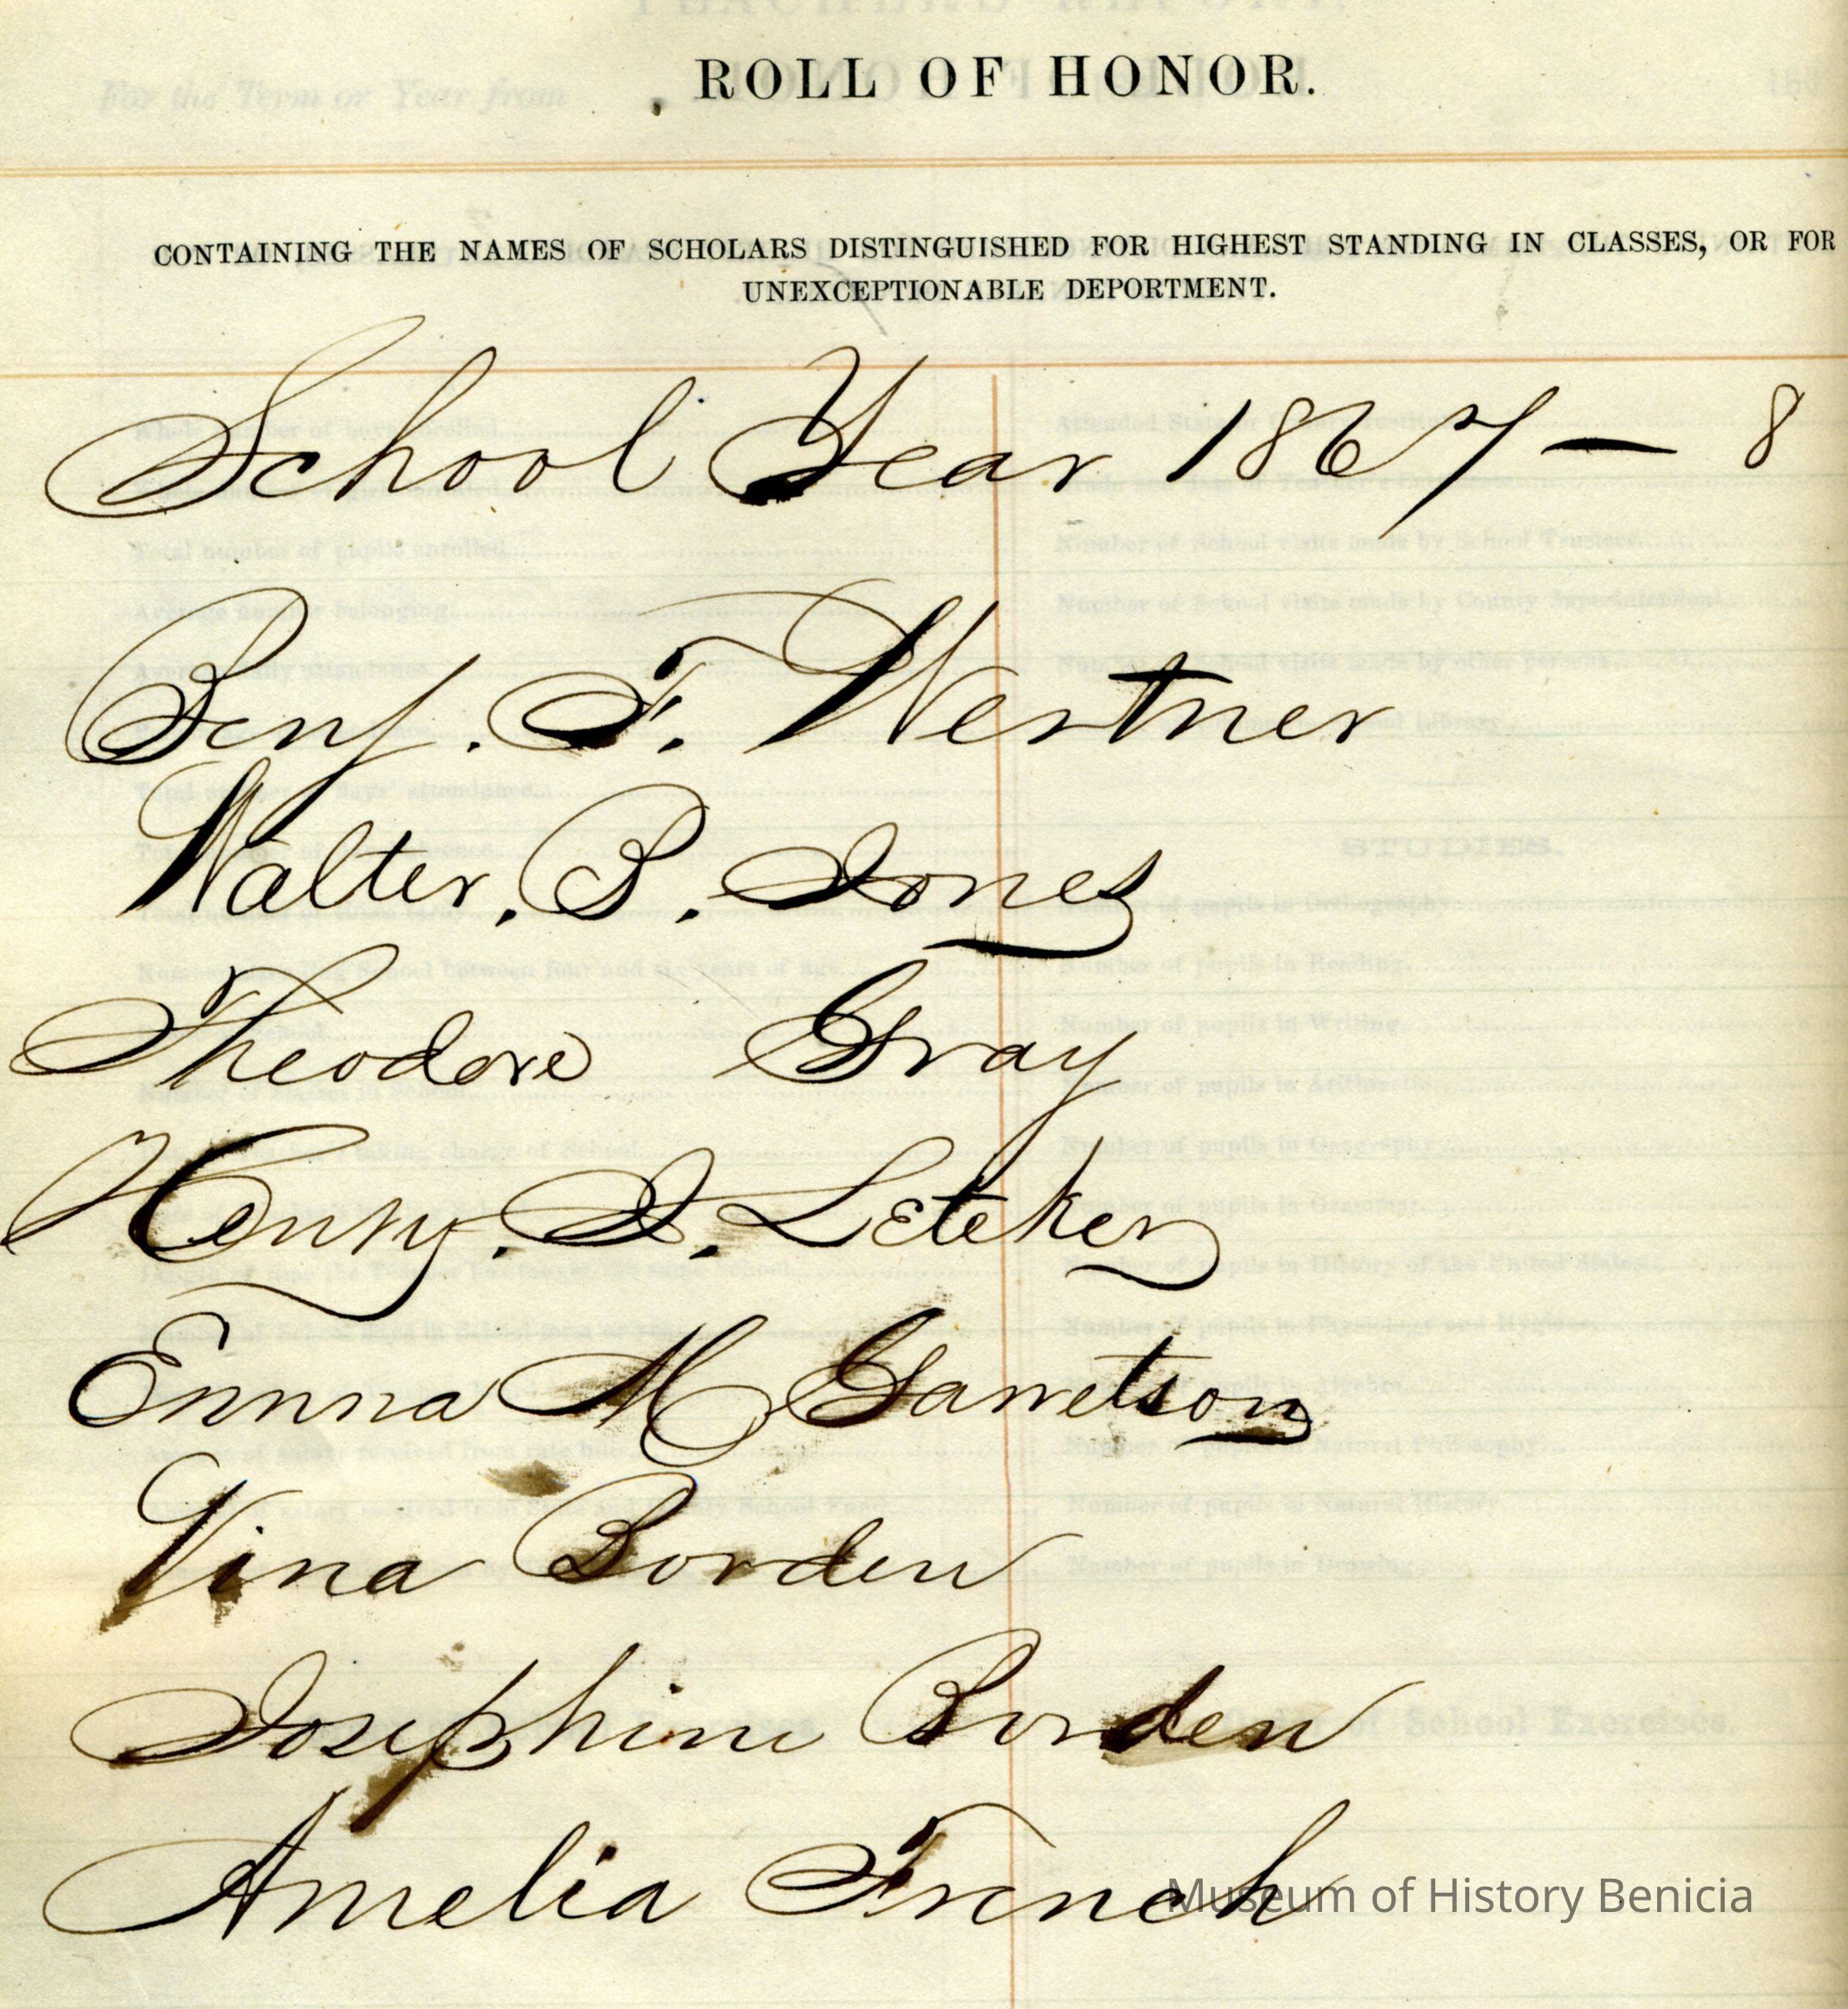 ROLL OF HONOR.
CONTAINING THE NAMES OF SCHOLARS DISTINGUISHED FOR HIGHEST STANDING IN CLASSES, OR FOR
UNEXCEPTIONABLE DEPORTMENT.
School Year 1867 — 8
Benj. F. Westner
Walter. B. Jones
Theodore Gray
Henry. J. Leteker
Emma M Garretson
Vina Borden
Josephine Borden
Amelia French
Museum of History Benicia